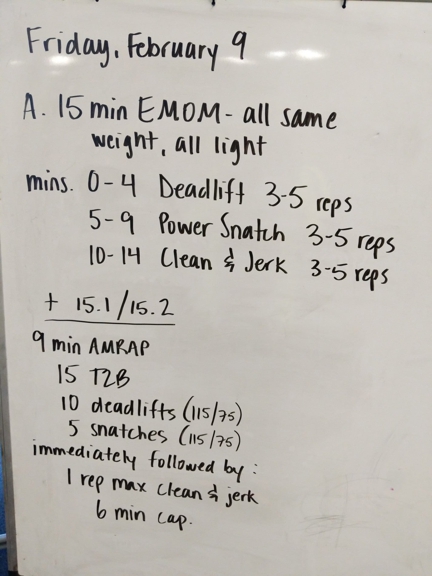 Friday, February 9
A. 15 min EMOM - all same
weight, all light
mins. 0-4 Deadlift 3-5 reps
5-9 Power Snatch 3-5 reps
10-14 Clean & Jerk 3-5 reps
+ 15.1/15.2
9 min AMRAP
15 T2B
10 deadlifts (115/75)
5 snatches (115/75)
immediately followed by:
1 rep max clean & jerk
6 min cap.